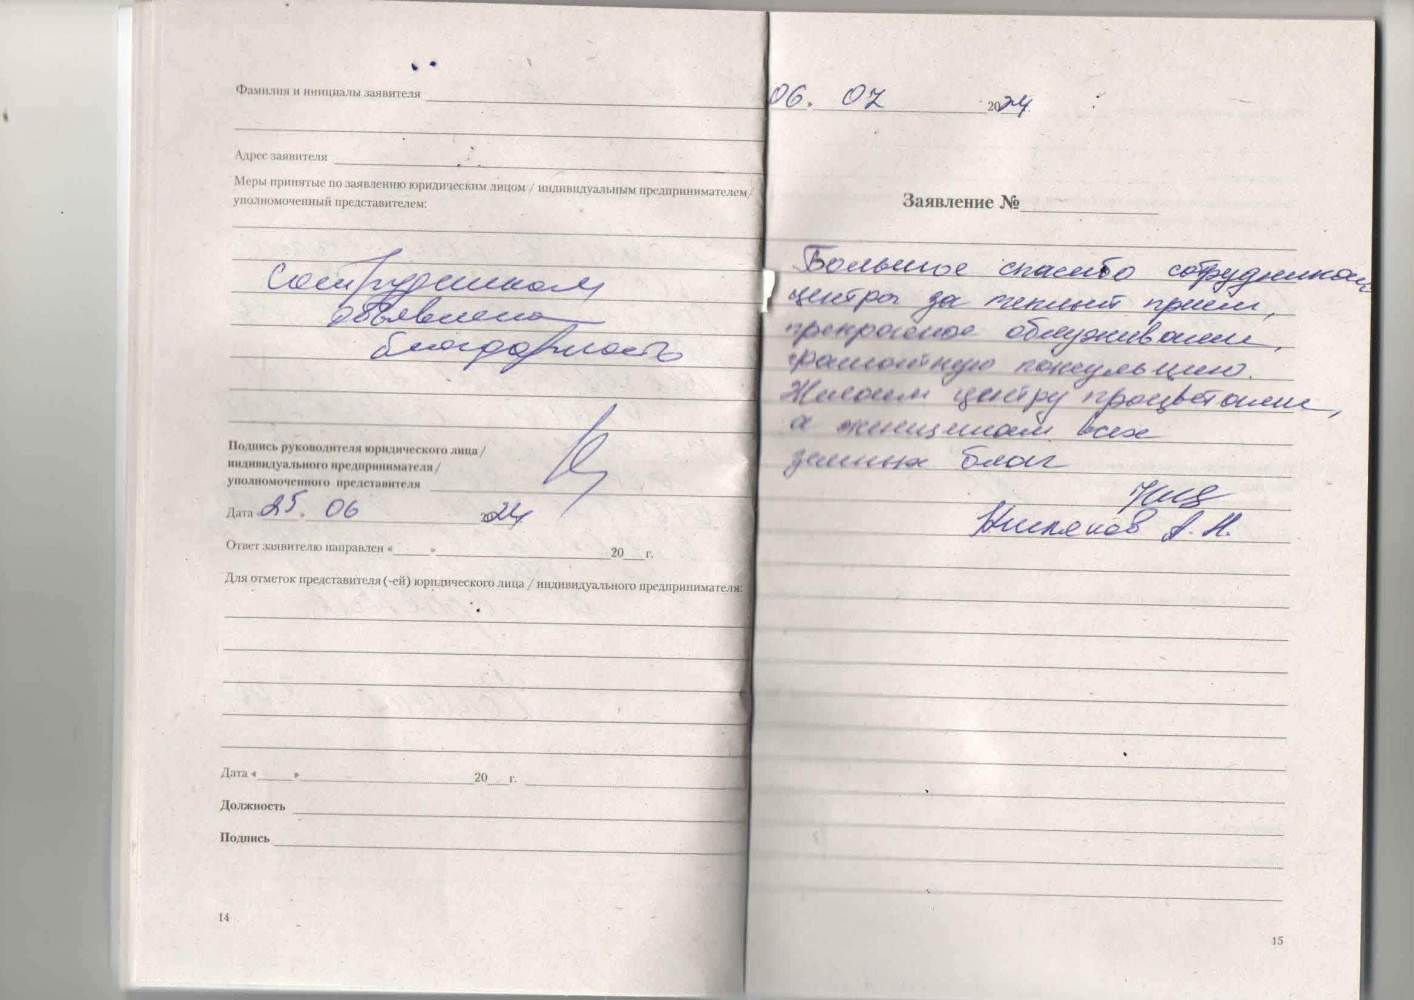 Фамилия и инициалы заявителя
Адрес заявителя
Меры принятые по заявлению юридическим лицом / индивидуальным предпринимателем/
уполномоченный представителем:
Сотрудникам
объявлена
благодарность
Подпись руководителя юридического лица /
индивидуального предпринимателя /
уполномоченного представителя
Дата «25» 06 2024
Ответ заявителю направлен «____»____20__г.
Для отметок представителя (-ей) юридического лица / индивидуального предпринимателя:
Дата «____»____20__г.
Должность
Подпись
14
06. 07 2024
Заявление №
Большое спасибо сотрудникам
центра за теплый прием,
прекрасное обслуживание,
грамотную консульцию.
Желаем центру процветания,
а женщинам всех
земных благ
А. Н.
15